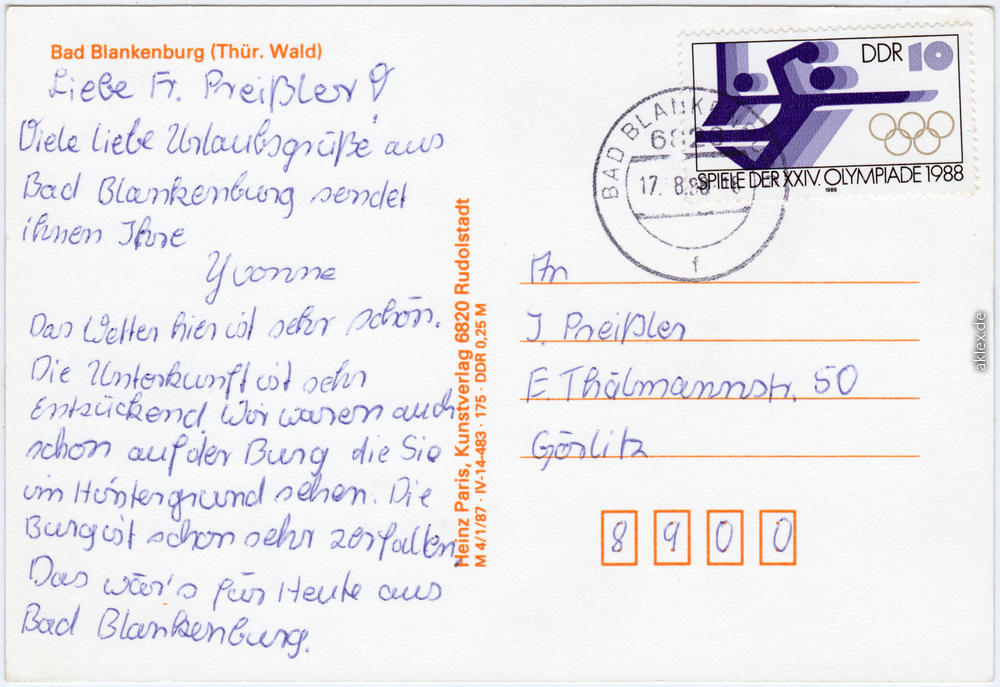 Bad Blankenburg (Thür. Wald)
Liebe Fr. Preißler!
Viele liebe Urlaubsgrüße aus
Bad Blankenburg sendet
ihnen Ihre
Yvonne
Das Wetter hier ist sehr schön.
Die Unterkunft ist sehr
Entzückend. Wir waren auch
schon auf der Burg die Sie
im Hintergrund sehen. Die
Burg ist schon sehr zerfallen.
Das wär's für Heute aus
Bad Blankenburg.
Heinz Paris, Kunstverlag 6820 Rudolstadt
M 4/1/87 · IV-14-483 · 175 · DDR 0,25 M
DDR 10
SPIELE DER XXIV. OLYMPIADE 1988
1988
BAD BLANKENBURG
6823
17. 8.88
f
An
J. Preißler
E. Thälmannstr. 50
Görlitz
8 9 0 0
aklex.de